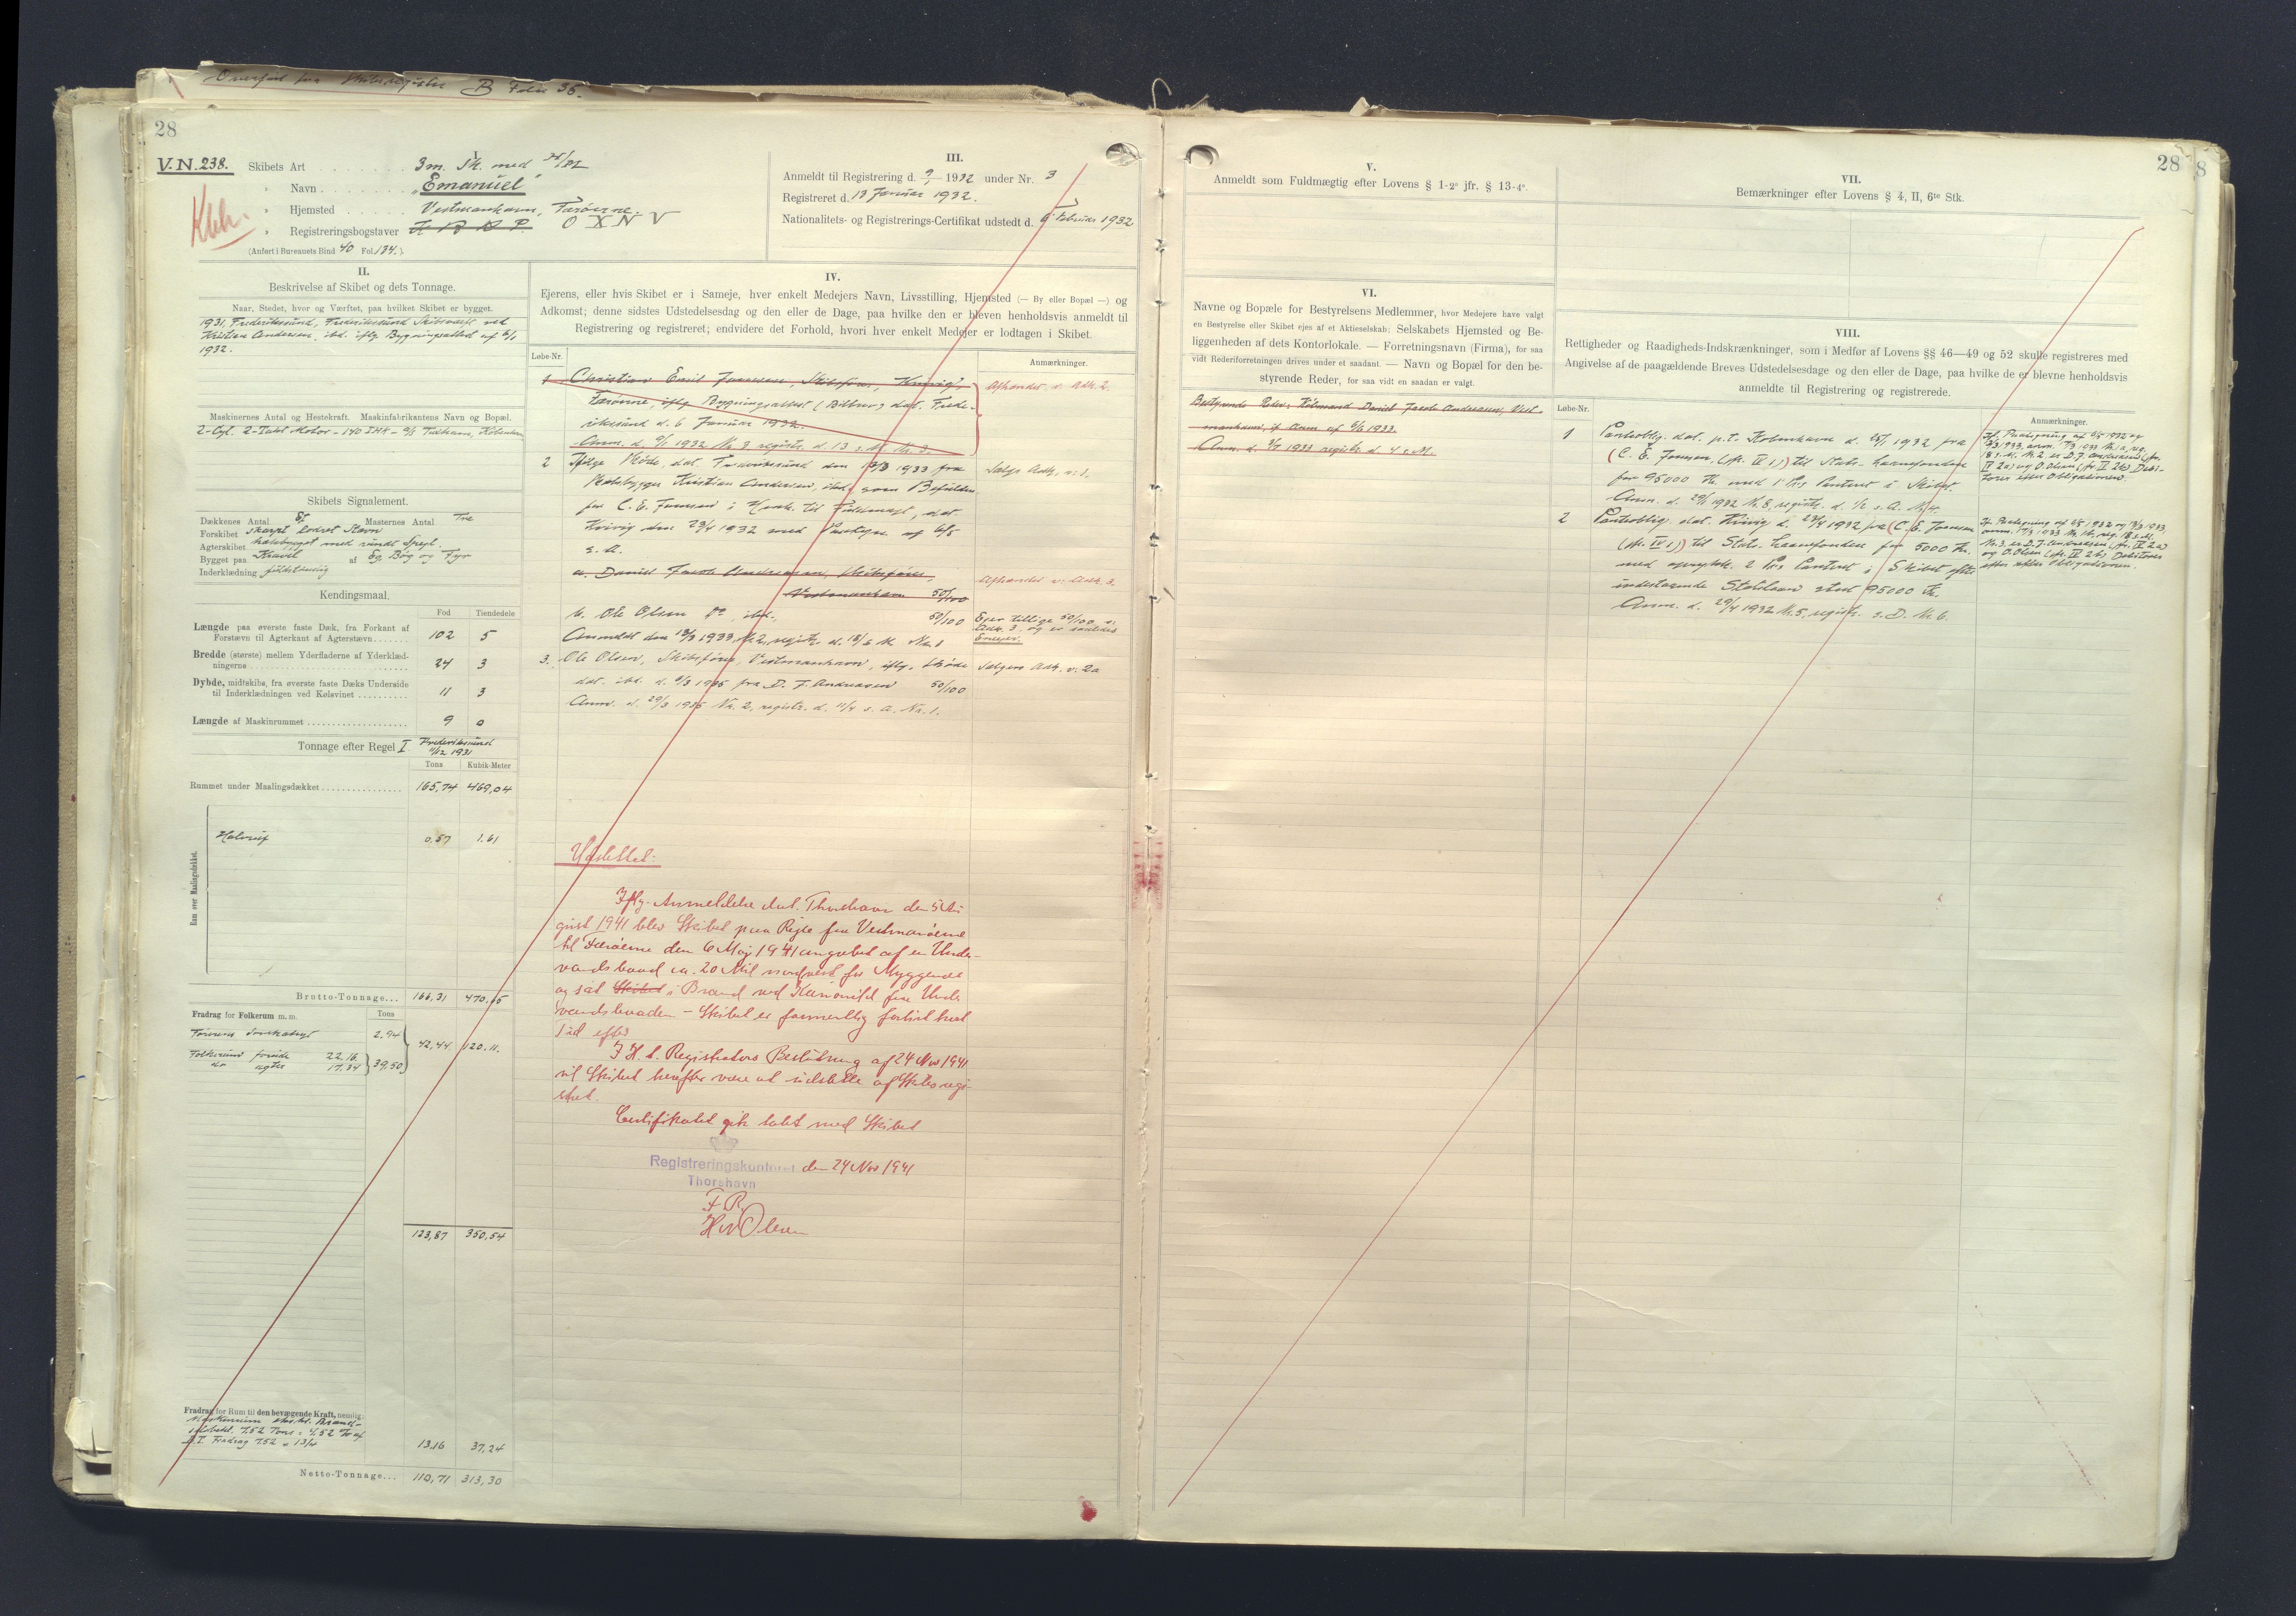 Overført fra Skibsregister B Folio 36.
28
V.N. 238.
Kbh.
I.
Skibets Art 3m. Sk. med
" Navn "Emanuel"
" Hjemsted Vestmanhavn, Færøerne.
" Registreringsbogstaver O X N V
(Anført i Bureauets Bind 40 Fol. 134.)
III.
Anmeldt til Registrering d. 9/1 1932 under Nr. 3
Registreret d. 13 Januar 1932.
Nationalitets- og Registrerings-Certifikat udstedt d. 6 Februar 1932
II.
Beskrivelse af Skibet og dets Tonnage.
Naar, Stedet, hvor og Værftet, paa hvilket Skibet er bygget.
1931, Frederikssund, Frederikssund Skibsværft ved
Kristian Andersen, ibd. iflg. Bygningsattest af 6/1
1932.
Maskinernes Antal og Hestekraft. Maskinfabrikantens Navn og Bopæl.
2-Cyl. 2-Takt Motor - 140 IHK - A/S Tuxham, København
Skibets Signalement.
Dækkenes Antal Et Masternes Antal Tre
Forskibet skarpt lodret Stævn
Agterskibet hækbygget med rundt Spejl
Bygget paa Kravel af Eg, Bøg og Fyr
Inderklædning fuldstændig
Kendingsmaal.
Fod Tiendedele
Længde paa øverste faste Dæk, fra Forkant af
Forstævn til Agterkant af Agterstævn 102 5
Bredde (største) mellem Yderfladerne af Yderklæd-
ningerne 24 3
Dybde, midtskibs, fra øverste faste Dæks Underside
til Inderklædningen ved Kølsvinet 11 3
Længde af Maskinrummet 9 0
Tonnage efter Regel I Frederikssund
1931
Tons Kubik-Meter
Rummet under Maalingsdækket 165,74 469,04
Rum over Maalingsdækket.
Halvruf 0,57 1.61
Brutto-Tonnage... 166,31 470,65
Fradrag for Folkerum m. m. Tons
2.94
42,44 120.11.
Folkerum forude 22.16
do agter 17,34 39,50
123,87 350,54
Fradrag for Rum til den bevægende Kraft, nemlig:
Maskinrum
7.52 Tons = 4.52 % af
B.T. Fradrag 7.52
13.16 37,24
Netto-Tonnage... 110,71 313,30
IV.
Ejerens, eller hvis Skibet er i Sameje, hver enkelt Medejers Navn, Livsstilling, Hjemsted (— By eller Bopæl —) og
Adkomst; denne sidstes Udstedelsesdag og den eller de Dage, paa hvilke den er bleven henholdsvis anmeldt til
Registrering og registreret; endvidere det Forhold, hvori hver enkelt Medejer er lodtagen i Skibet.
Løbe-Nr. Anmærkninger.
1 Christian Emil Joensen, Skibsfører, Kvivig,
Færøerne, iflg. Bygningsattest (Bilbrev) dat. Frede-
rikssund d. 6 Januar 1932.
Anm. d. 9/1 1932 Nr. 3 registr. d. 13 s. M. Nr. 3.
Afhændet v. Adk. 2.
2 Ifølge Skøde, dat. Frederikssund den 13/3 1933 fra
Skibsbygger Kristian Andersen, ibd. som Befuldm.
for C. E. Joensen i Henh. til Fuldmagt, dat.
Kvivig den 23/4 1932 med Paategn. af 6/5
s. A.
Sælgs Adk. v. 1.
a. Daniel Jacob Andreasen, Skibsfører,
Vestmanhavn 50/100
Afhændet v. Adk. 3.
b. Ole Olsen do, ibd., 50/100
Ejer tillige 50/100 v.
Adk. 3. og er saaledes
Eneejer.
3. Ole Olsen, Skibsfører, Vestmanhavn, iflg. Skøde
dat. ibd. d. 9/3 1935 fra D. J. Andreasen 50/100
Anm. d. 29/3 1935 Nr. 2, registr. d. 11/4 s. A. Nr. 1.
Sælgers Adk. v. 2a
Udslettet:
Iflg. Anmeldelse dat. Thorshavn den 5 Au-
gust 1941 blev Skibet paa Rejse fra Vestmanøerne
til Færøerne den 6 Maj 1941 angrebet af en Under-
vandsbaad ca. 20 Mil nordvest for Myggenæs
og sat Skibet i Brand ved Kanonild fra Under-
vandsbaaden - Skibet er formentlig forlist kort
Tid efter
I H. t. Registrators Beslutning af 24 Nov 1941
vil Skibet herefter være at udslette af Skibsregi-
stret.
Certifikatet gik tabt med Skibet
Registreringskontoret den 24 Nov 1941
Thorshavn
F. R.
28
8
V.
Anmeldt som Fuldmægtig efter Lovens § 1-2° jfr. § 13-4°.
VI.
Navne og Bopæle for Bestyrelsens Medlemmer, hvor Medejere have valgt
en Bestyrelse eller Skibet ejes af et Aktieselskab; Selskabets Hjemsted og Be-
liggenheden af dets Kontorlokale. — Forretningsnavn (Firma), for saa
vidt Rederiforretningen drives under et saadant. — Navn og Bopæl for den be-
styrende Reder, for saa vidt en saadan er valgt.
Bestyrende Reder: Købmand Daniel Jacob Andreasen, Vest-
manhavn, if. Anm. af 1933.
Anm. d. 1933 registr. d. 4 s. M.
VII.
Bemærkninger efter Lovens § 4, II, 6te Stk.
VIII.
Rettigheder og Raadigheds-Indskrænkninger, som i Medfør af Lovens §§ 46—49 og 52 skulle registreres med
Angivelse af de paagældende Breves Udstedelsesdage og den eller de Dage, paa hvilke de er blevne henholdsvis
anmeldte til Registrering og registrerede.
Løbe-Nr. Anmærkninger.
1 Panteoblig. dat. p.t. København d. 25/1 1932 fra
(C. E. Joensen, (Nr. IV 1)) til Stats-Laanefonden
for 95000 Kr. med 1' Pr. Panteret i Skibet.
Anm. d. 29/1 1932 Nr. 8, registr. d. 1/2 s. A. Nr. 4.
If. Paategning af 1932 og
1933, anm. 1933 Nr. 1a, reg.
18 s. M. Nr. 2 er D. J. Andreasen (Nr.
IV 2a) og O. Olsen (Nr. IV 2b) Debi-
torer efter Obligationen.
2 Panteoblig. dat. Kvivig d. 23/4 1932 fra (C. E. Joensen
(Nr. IV 1)) til Stats-Laanefonden for 5000 Kr.
med oprykk. 2 Pr. Panteret i Skibet efter
indestaaende Statslaan stort 95000 Kr.
Anm. d. 29/4 1932 Nr. 5, registr. s. D. Nr. 6.
If. Paategning af 1932 og 1933,
anm. 1933 Nr. 1b, reg. 18 s. M.
Nr. 3. er D. J. Andreasen (Nr. IV 2a)
og O. Olsen (Nr. IV 2b) Debitorer
efter Obligationen.